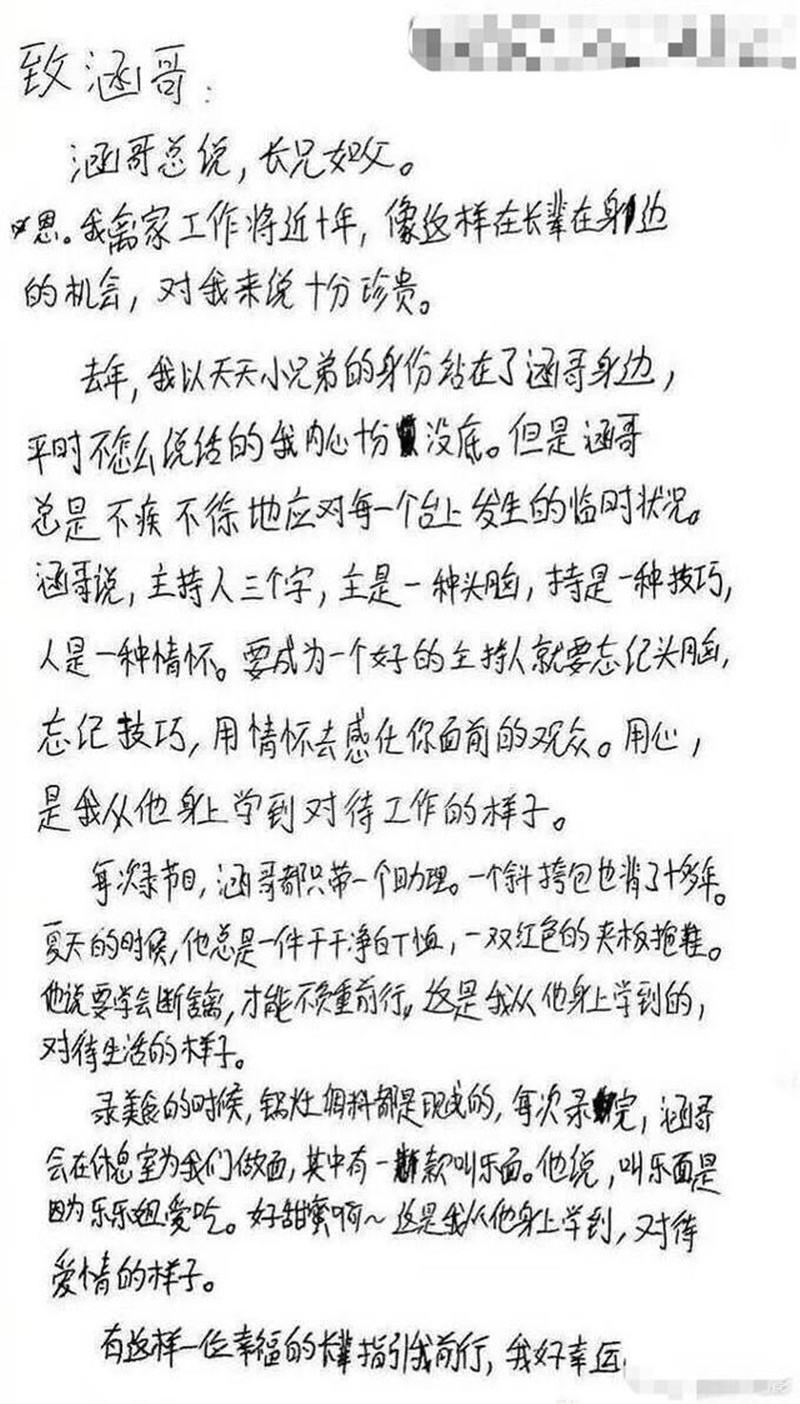 致涵哥：
涵哥总说，长兄如父。
恩。我离家工作将近十年，像这样在长辈在身边
的机会，对我来说十分珍贵。
去年，我以天天小兄弟的身份站在了涵哥身边，
平时不怎么说话的我内心十分没底。但是涵哥
总是不疾不徐地应对每一个台上发生的临时状况。
涵哥说，主持人三个字，主是一种头脑，持是一种技巧，
人是一种情怀。要成为一个好的主持人就要忘记头脑，
忘记技巧，用情怀去感化你面前的观众。用心，
是我从他身上学到对待工作的样子。
每次录节目，涵哥都只带一个助理。一个斜挎包也背了十多年。
夏天的时候，他总是一件干干净白T恤，一双红色的夹板拖鞋。
他说要学会断舍离，才能不负重前行。这是我从他身上学到的，
对待生活的样子。
录美食的时候，锅灶调料都是现成的，每次录完，涵哥
会在休息室为我们做面，其中有一款叫乐面。他说，叫乐面是
因为乐乐姐爱吃。好甜蜜啊～这是我从他身上学到，对待
爱情的样子。
有这样一位幸福的长辈指引我前行，我好幸运